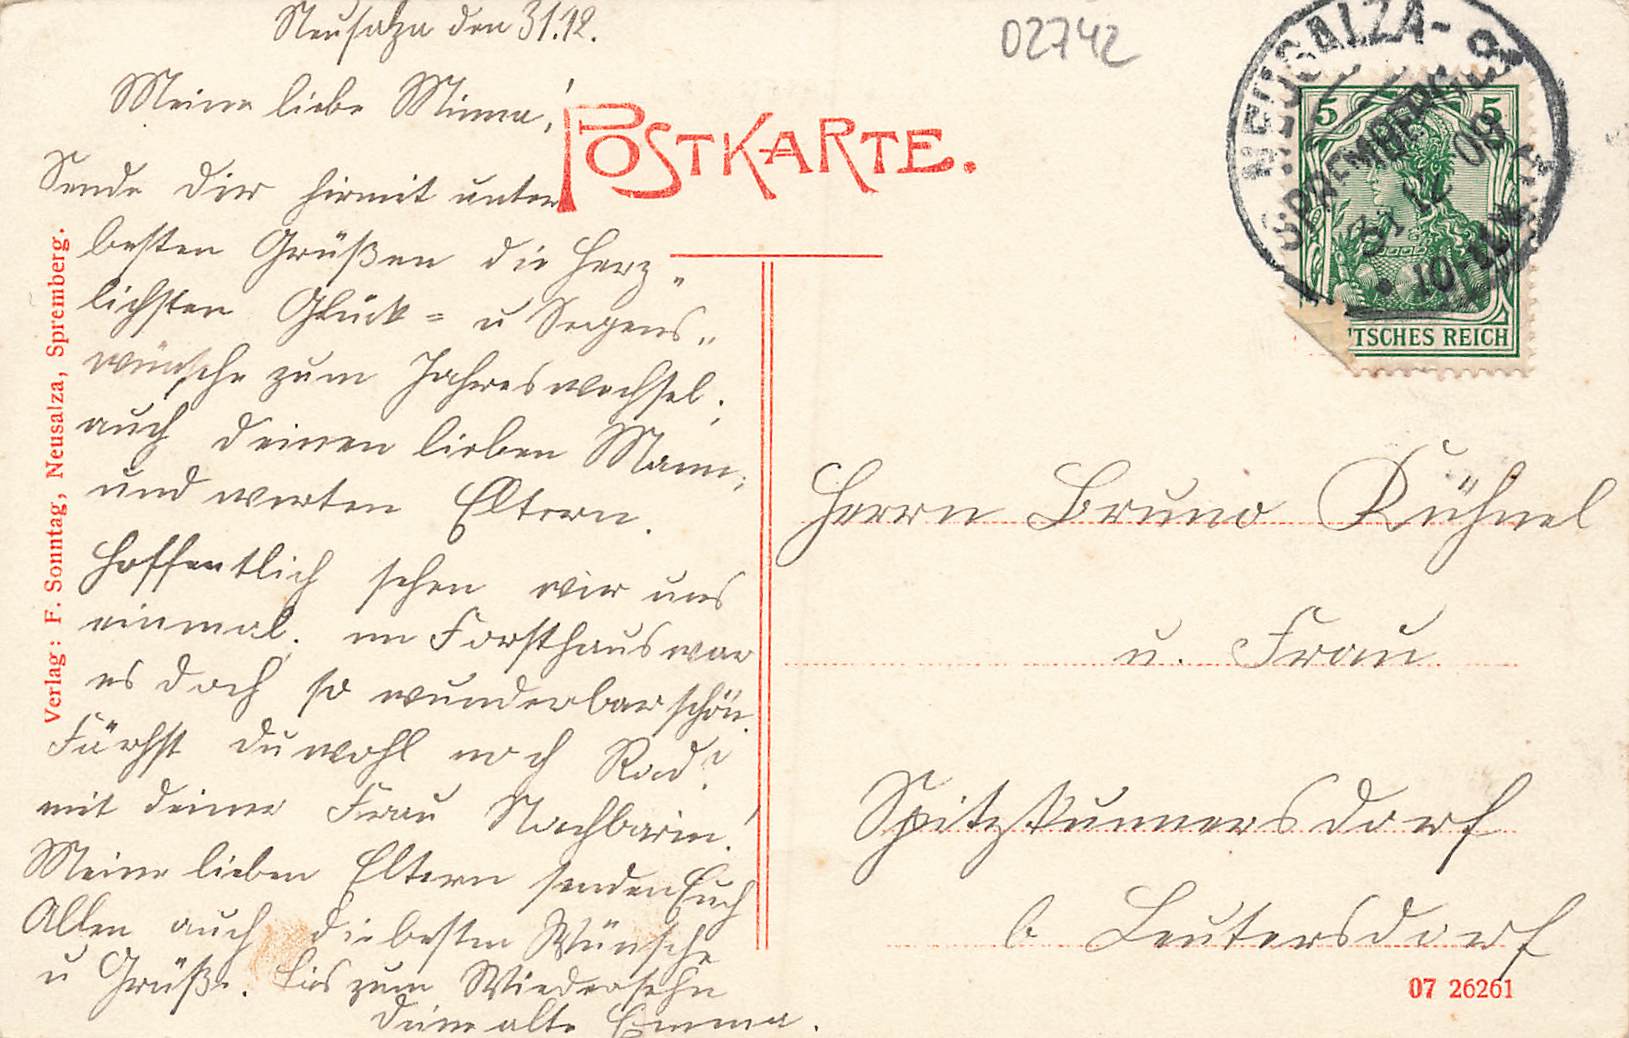 Neusalza den 31.12.
02742
Meine liebe Minna!
POSTKARTE.
Sende Dir hirmit unter
besten Grüßen die Herz„
lichsten Glück= u Segens„
wünsche zum Jahreswechsel.
auch deinen lieben Mann,
und werten Eltern.
Hoffentlich sehen wir uns
einmal. im Forsthaus war
es doch so wunderbar schön.
Fährst du wohl noch Rad?
mit deiner Frau Nachbarin!
Meine lieben Eltern senden Euch
Allen auch die besten Wünsche
u Grüße. bis zum Wiedersehn
deine alte Emma.
Verlag: F. Sonntag, Neusalza, Spremberg.
NEUSALZA-
SPREMBERG
31 12 09
10-11
5 5
TSCHES REICH
Herrn Bruno Kühnel
u. Frau
Spitzkunnersdorf
b Leutersdorf
07 26261